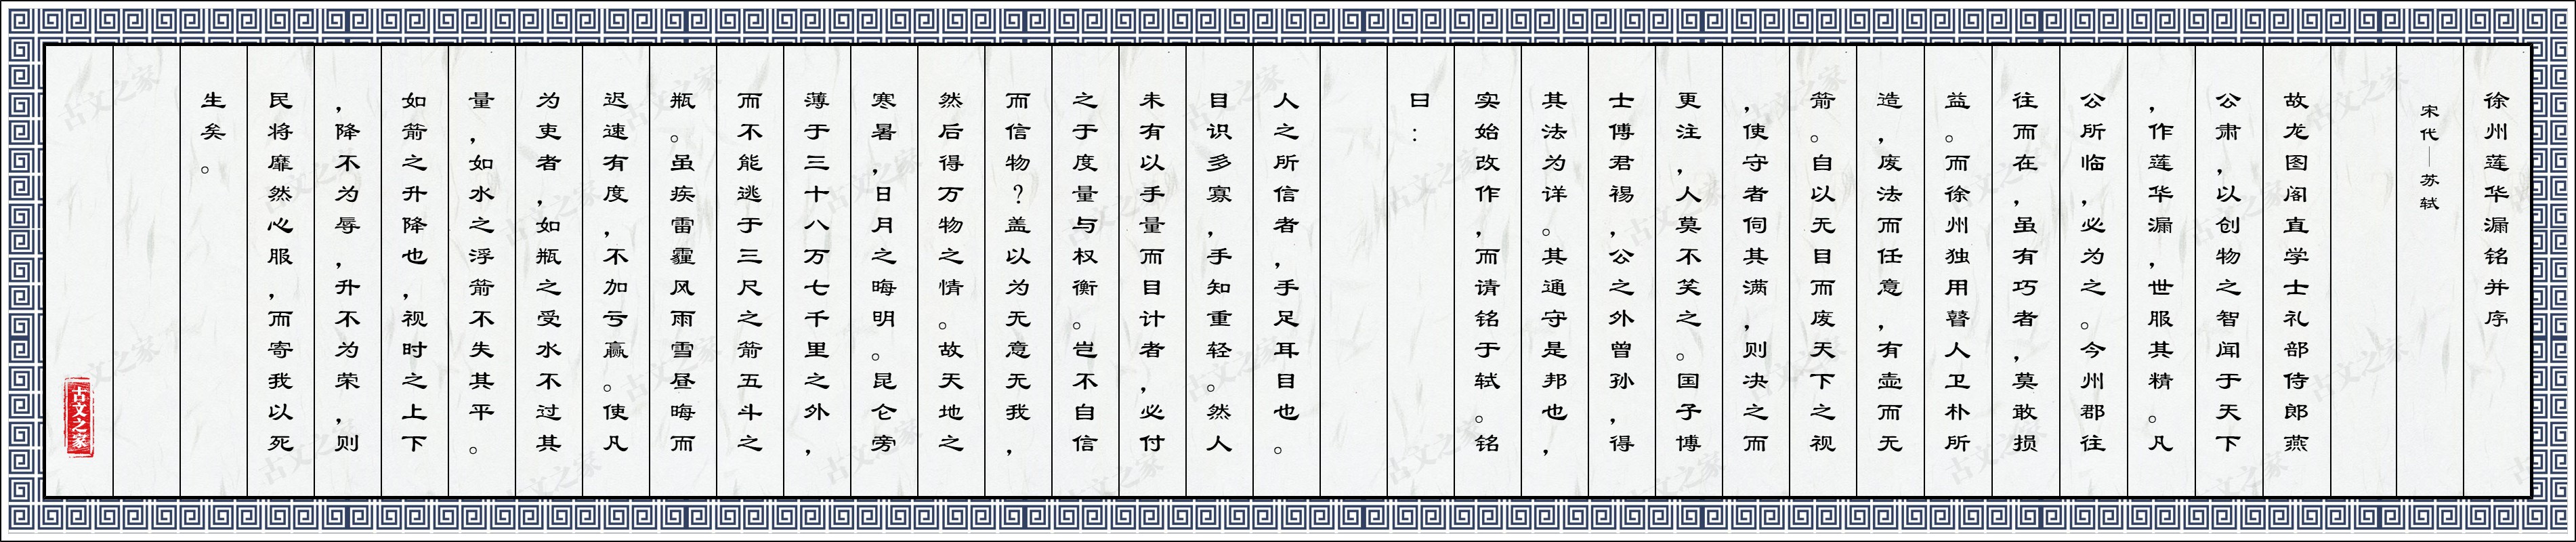 徐州莲华漏铭并序
宋代——苏轼
故龙图阁直学士礼部侍郎燕
公肃，以创物之智闻于天下
，作莲华漏，世服其精。凡
公所临，必为之。今州郡往
往而在，虽有巧者，莫敢损
益。而徐州独用瞽人卫朴所
造，废法而任意，有壶而无
箭。自以无目而废天下之视
，使守者伺其满，则决之而
更注，人莫不笑之。国子博
士傅君裼，公之外曾孙，得
其法为详。其通守是邦也，
实始改作，而请铭于轼。铭
曰：
人之所信者，手足耳目也。
目识多寡，手知重轻。然人
未有以手量而目计者，必付
之于度量与权衡。岂不自信
而信物？盖以为无意无我，
然后得万物之情。故天地之
寒暑，日月之晦明。昆仑旁
薄于三十八万七千里之外，
而不能逃于三尺之箭五斗之
瓶。虽疾雷霾风雨雪昼晦而
迟速有度，不加亏赢。使凡
为吏者，如瓶之受水不过其
量，如水之浮箭不失其平。
如箭之升降也，视时之上下
，降不为辱，升不为荣，则
民将靡然心服，而寄我以死
生矣。
古文之家